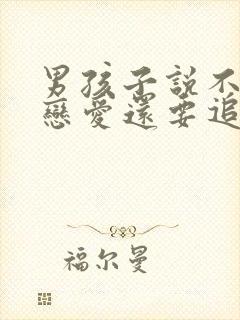 男孩子説不
戀愛還要追
福尔曼